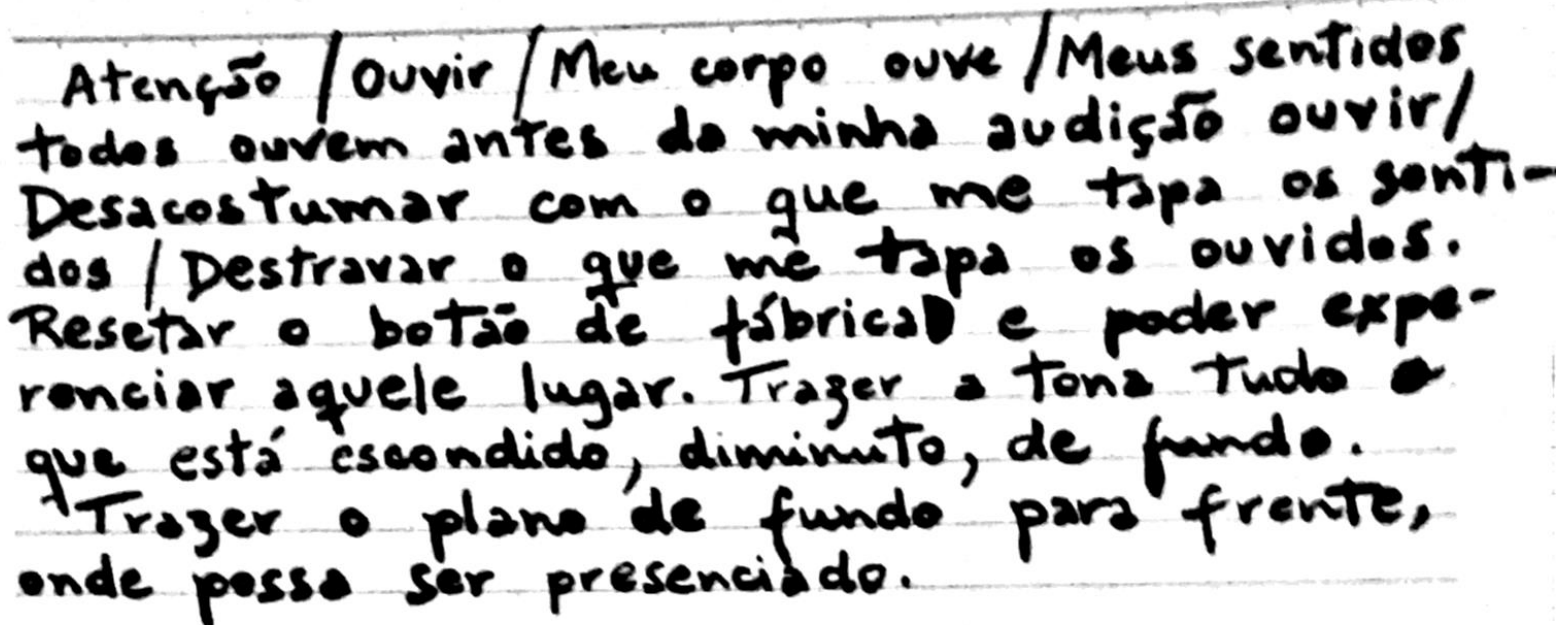 Atenção / Ouvir / Meu corpo ouve / Meus sentidos
todos ouvem antes da minha audição ouvir/
Desacostumar com o que me tapa os senti-
dos / Destravar o que me tapa os ouvidos.
Resetar o botão de fábrica e poder expe-
renciar aquele lugar. Trazer a tona tudo o
que está escondido, diminuto, de fundo.
Trazer o plano de fundo para frente,
onde possa ser presenciado.